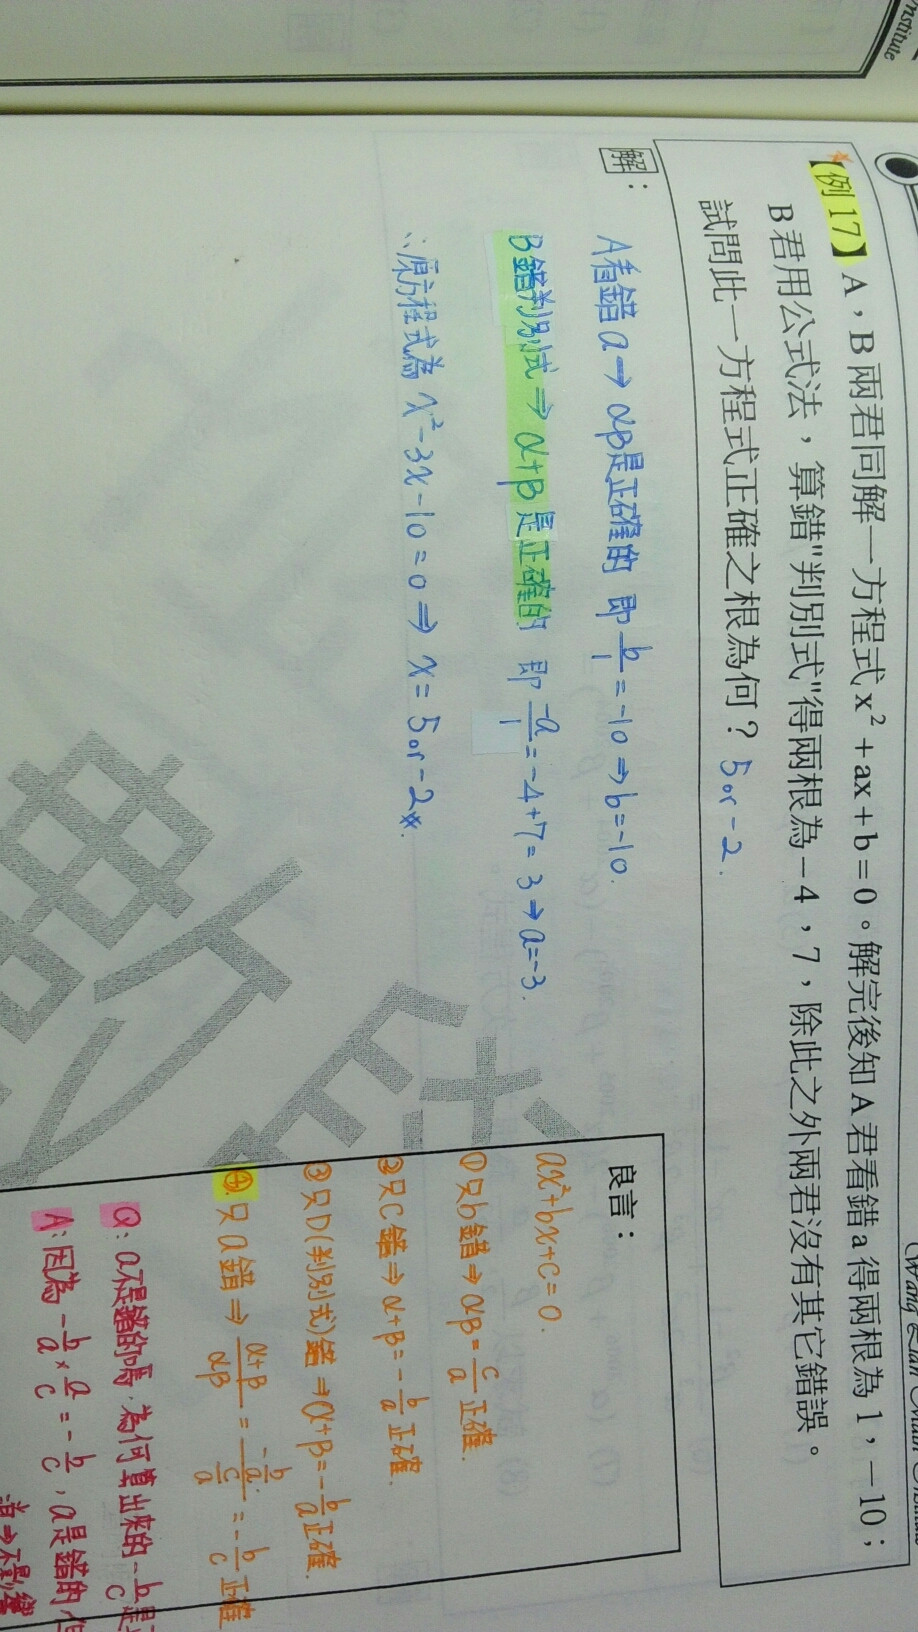 nstitute
【例 17】A，B 兩君同解一方程式 x² + ax + b = 0。解完後知 A 君看錯 a 得兩根為 1，－10；
B 君用公式法，算錯"判別式"得兩根為－4，7，除此之外兩君沒有其它錯誤。
試問此一方程式正確之根為何？ 5 or -2.
解：
A看錯a → αβ是正確的 即 b/1 = -10 ⇒ b = -10.
B錯判別式 ⇒ α+β是正確的 即 -a/1 = -4+7 = 3 → a = -3.
∴原方程式為 x²-3x-10=0 ⇒ x = 5 or -2※.
良言：
ax²+bx+c=0.
①只b錯 ⇒ αβ = c/a 正確.
②只C錯 ⇒ α+β = -b/a 正確.
③只D(判別式)錯 ⇒ α+β = -b/a 正確.
④只a錯 ⇒ (α+β)/(αβ) = (-b/a)/(c/a) = -b/c 正確
Q：a不是錯的嗎，為何算出來的 -b/c 是
A：因為 -b/a × a/c = -b/c，a是錯的，但
不影響